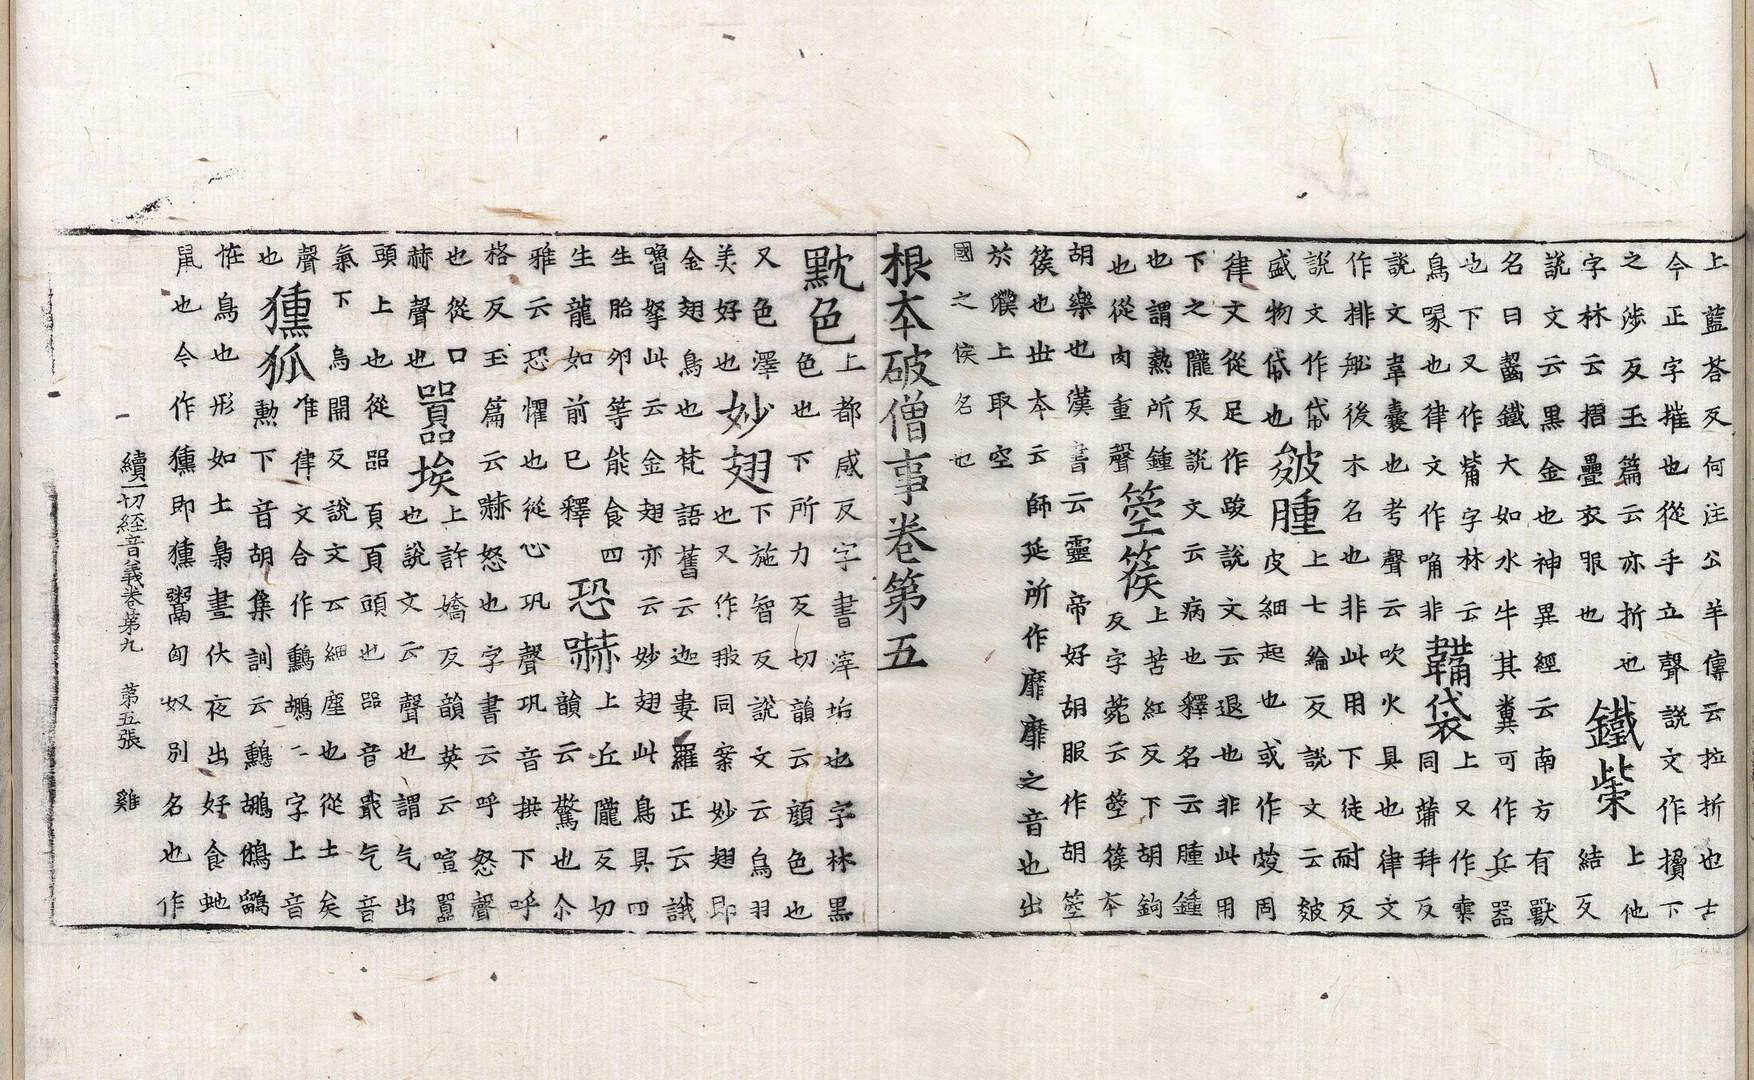 上藍荅反何注公羊傳云拉折也古
今正字摧也從手立聲說文作摺下
之涉反玉篇云亦折也
字林云摺疊衣服也
鐵觜
上他
結反
說文云黑金也神異經云南方有獸
名曰齧鐵大如水牛其糞可作兵器
也下又作觜字林云
鳥喙也律文作㖷非
韛袋
上又作橐
同蒲拜反
說文韋囊也考聲云吹火具也律文
作排船後木名也非此用下徒耐反
說文作帒
盛物帒也
皴腫
上七綸反說文云皴
皮細起也或作㕙同
律文從足作踆說文云退也非此用
下之隴反說文云病也釋名云腫鍾
也謂熱所鍾
也從肉重聲
箜篌
上苦紅反下胡鉤
反字菀云箜篌本
胡樂也漢書云靈帝好胡服作胡箜
篌也世本云師延所作靡靡之音也出
於濮上取空
國之侯名也
根本破僧事卷第五
黕色
上都感反字書滓垢也字林黑
色也下所力反切韻云顏色也
又色澤
美好也
妙翅
下施智反說文云鳥羽
也又作翄同案妙翅即
金翅鳥也梵語舊云迦婁羅正云誐
嚕拏此云金翅亦云妙翅此鳥具四
生胎卵等能食四
生龍如前已釋
恐嚇
上丘隴反切
韻云驚也尒
雅云恐懼也從心巩聲巩音拱下呼
格反玉篇云嚇怒也字書云呼怒聲
也從口
赫聲也
嚻埃
上許嬌反韻英云喧囂
也說文云聲也謂气出
頭上也從㗊頁頁頭也㗊音戢气音
氣下烏開反說文云細塵也從土矣
聲
也
獯狐
准律文合作鷻鶘二字上音
勳下音胡集訓云鷻鶘鵂鶹
恠鳥也形如土梟晝伏夜出好食虵
鼠也今作獯即獯鬻匈奴別名也作
續一切經音義卷第九 第五張 雞